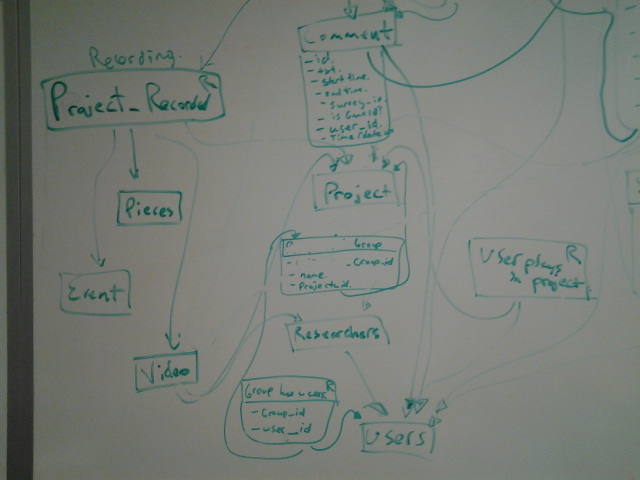 Recording.
Project_Recorded
R
Pieces
Event
Video
Comment
- id.
- txt.
- start time.
- end time.
- survey_id
- is General?
- user_id.
- Time/date
Project
Group
- Group_id
- name.
- project_id.
Researchers
Group has users
R
- Group_id
- user_id
Users
User plays
R
in project